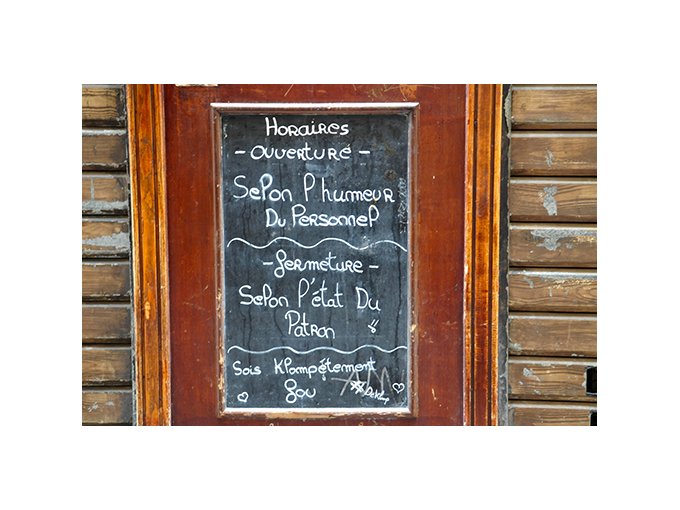 Horaires
- Ouverture -
Selon l'humeur
Du Personnel
- fermeture -
Selon l'état Du
Patron !!
Sois Klompétement
fou